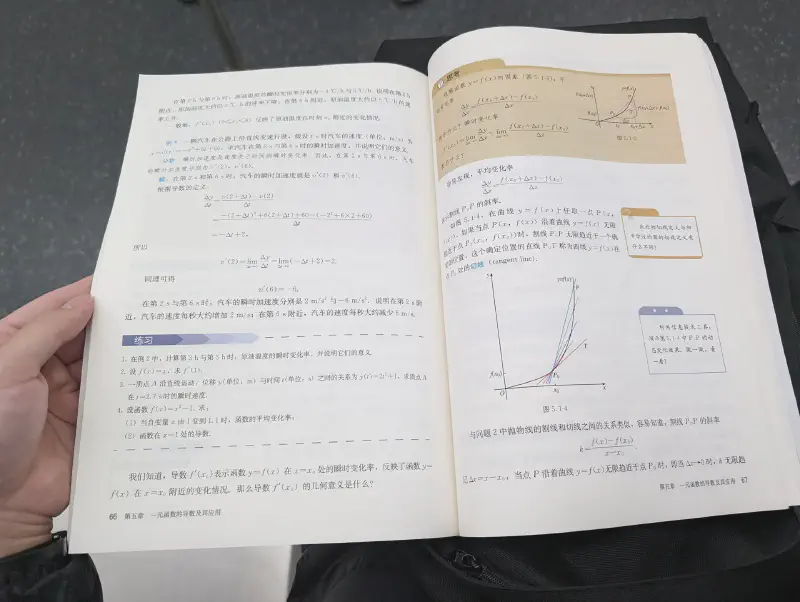 一般地，
例4 一辆汽车在公路上沿直线变速行驶，假设t s时汽车的速度（单位：m/s）为
y=v(t)=-t²+6t+60，求汽车在第2 s与第6 s时的瞬时加速度，并说明它们的意义．
分析：瞬时加速度是速度关于时间的瞬时变化率．因此，在第2 s与第6 s时，汽车
的瞬时加速度分别为v′(2)，v′(6)．
解：在第2 s和第6 s时，汽车的瞬时加速度就是v′(2)和v′(6)．
根据导数的定义，
Δy/Δt=[v(2+Δt)-v(2)]/Δt
=[-(2+Δt)²+6(2+Δt)+60-(-2²+6×2+60)]/Δt
=-Δt+2，
所以
v′(2)=lim Δy/Δt=lim(-Δt+2)=2．
同理可得
v′(6)=-6．
在第2 s与第6 s时，汽车的瞬时加速度分别是2 m/s²与-6 m/s²．说明在第2 s附
近，汽车的速度每秒大约增加2 m/s；在第6 s附近，汽车的速度每秒大约减少6 m/s．
练习
1. 在例3中，计算第3 h与第5 h时，原油温度的瞬时变化率，并说明它们的意义．
2. 设f(x)=x，求f′(1)．
3. 一质点A沿直线运动，位移y（单位：m）与时间t（单位：s）之间的关系为y(t)=2t²+1，求质点A
在t=2.7 s时的瞬时速度．
4. 设函数f(x)=x²-1．求：
(1) 当自变量x由1变到1.1时，函数的平均变化率；
(2) 函数在x=1处的导数．
我们知道，导数f′(x₀)表示函数y=f(x)在x=x₀处的瞬时变化率，反映了函数y=
f(x)在x=x₀附近的变化情况．那么导数f′(x₀)的几何意义是什么？
66 第五章 一元函数的导数及其应用
思考
观察函数y=f(x)的图象（图5.1-3），平
均变化率
Δy/Δx=[f(x₀+Δx)-f(x₀)]/Δx
表示什么？瞬时变化率
f′(x₀)=lim Δy/Δx=lim [f(x₀+Δx)-f(x₀)]/Δx
表示什么？
图5.1-3
容易发现，平均变化率
Δy/Δx=[f(x₀+Δx)-f(x₀)]/Δx
表示割线P₀P的斜率．
如图5.1-4，在曲线y=f(x)上任取一点P(x,
f(x))，如果当点P(x, f(x))沿着曲线y=f(x)无限
趋近于点P₀(x₀, f(x₀))时，割线P₀P无限趋近于一个确
定的位置，这个确定位置的直线P₀T称为曲线y=f(x)在
点P₀处的切线（tangent line）．
此处的切线定义与初
中学过的圆的切线定义有
什么不同？
y
y=f(x)
P
T
f(x₀)
P₀
O
x₀
x
图5.1-4
利用信息技术工具，
演示图5.1-4中P₀P的动
态变化效果．做一做，看
一看！
与问题2中抛物线的割线和切线之间的关系类似，容易知道，割线P₀P的斜率
k=[f(x)-f(x₀)]/(x-x₀)．
记Δx=x-x₀，当点P沿着曲线y=f(x)无限趋近于点P₀时，即当Δx→0时，k无限趋
第五章 一元函数的导数及其应用 67